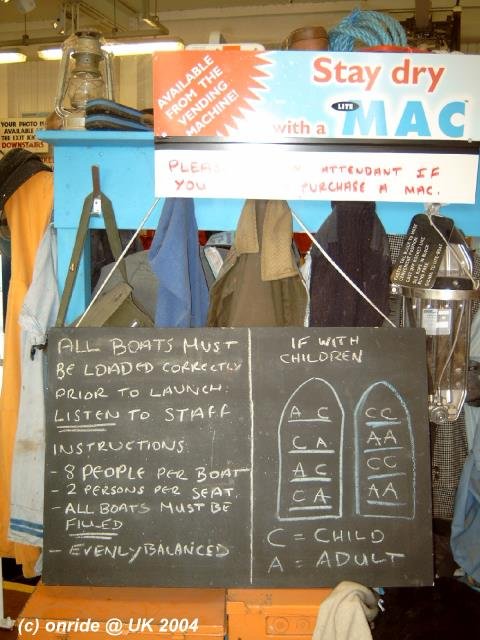 AVAILABLE
FROM THE
VENDING
MACHINE!
Stay dry
with a LITE MAC
YOUR PHOTO
AVAILABLE AT
THE EXIT
DOWNSTAIRS
ATTENDANT IF
YOU PURCHASE A MAC.
ALL BOATS MUST
BE LOADED CORRECTLY
PRIOR TO LAUNCH.
LISTEN TO STAFF
INSTRUCTIONS
- 8 PEOPLE PER BOAT
- 2 PERSONS PER SEAT.
- ALL BOATS MUST BE
FILLED
- EVENLY BALANCED
IF WITH
CHILDREN
A C
C A
A C
C A
CC
AA
CC
AA
C = CHILD
A = ADULT
(c) onride @ UK 2004